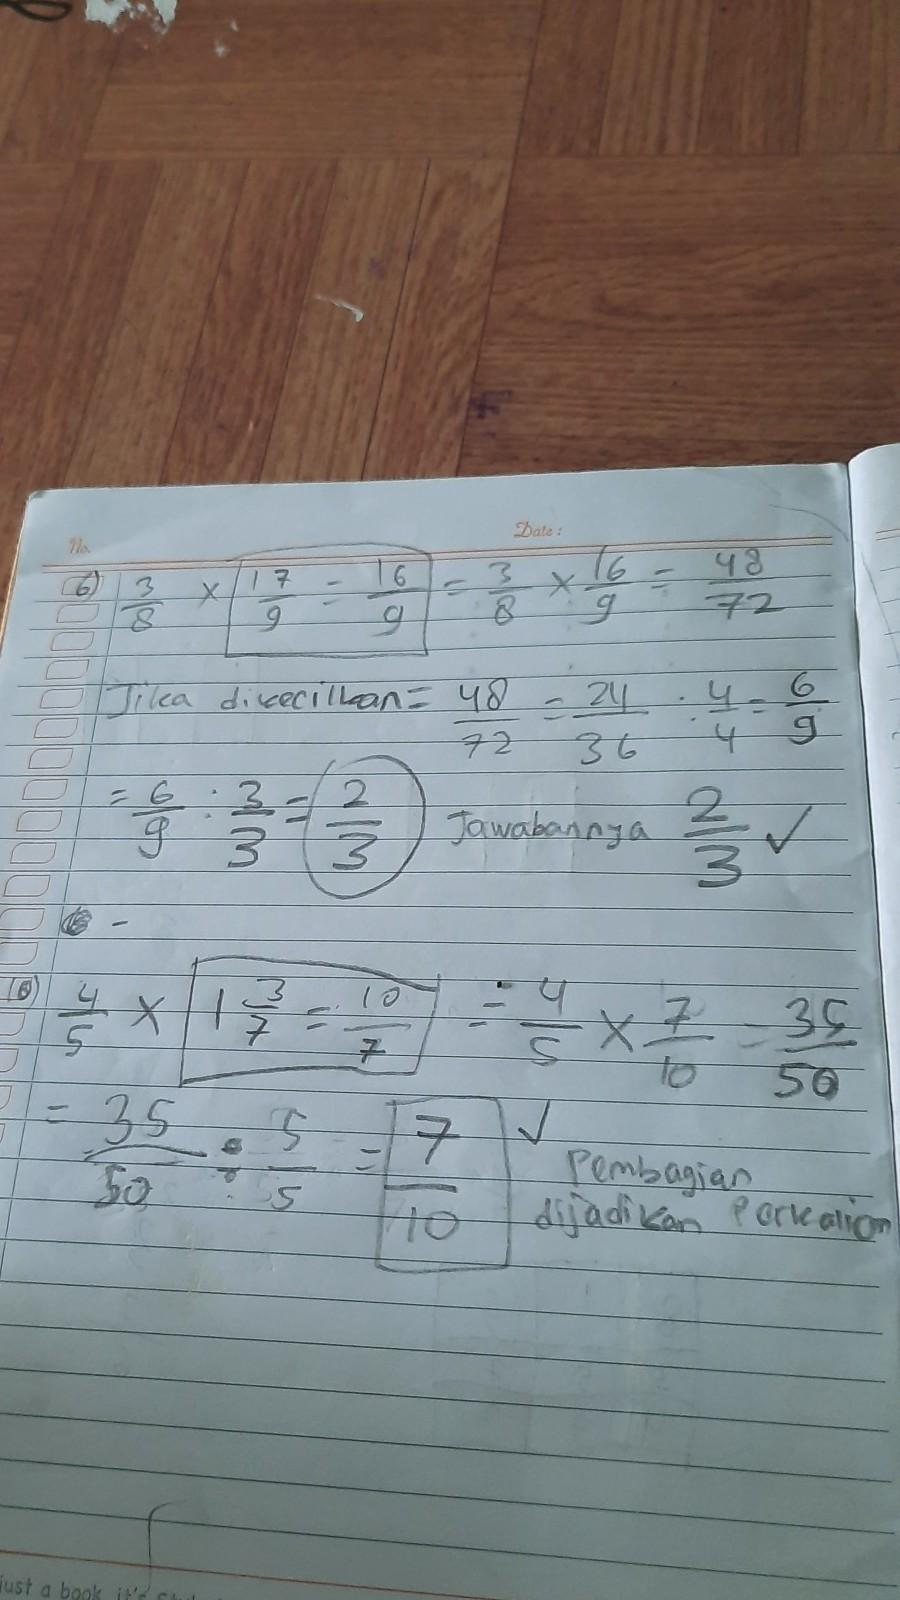 No. Date:
6) 3/8 × 17/9 = 16/9 = 3/8 × 16/9 = 48/72
Jika dikecilkan = 48/72 = 24/36 : 4/4 = 6/9
= 6/9 : 3/3 = 2/3 Jawabannya 2/3 ✓
-
10) 4/5 × 1 3/7 = 10/7 = 4/5 × 7/10 = 35/50
= 35/50 ÷ 5/5 = 7/10 ✓
Pembagian
dijadikan Perkalian
just a book, it's